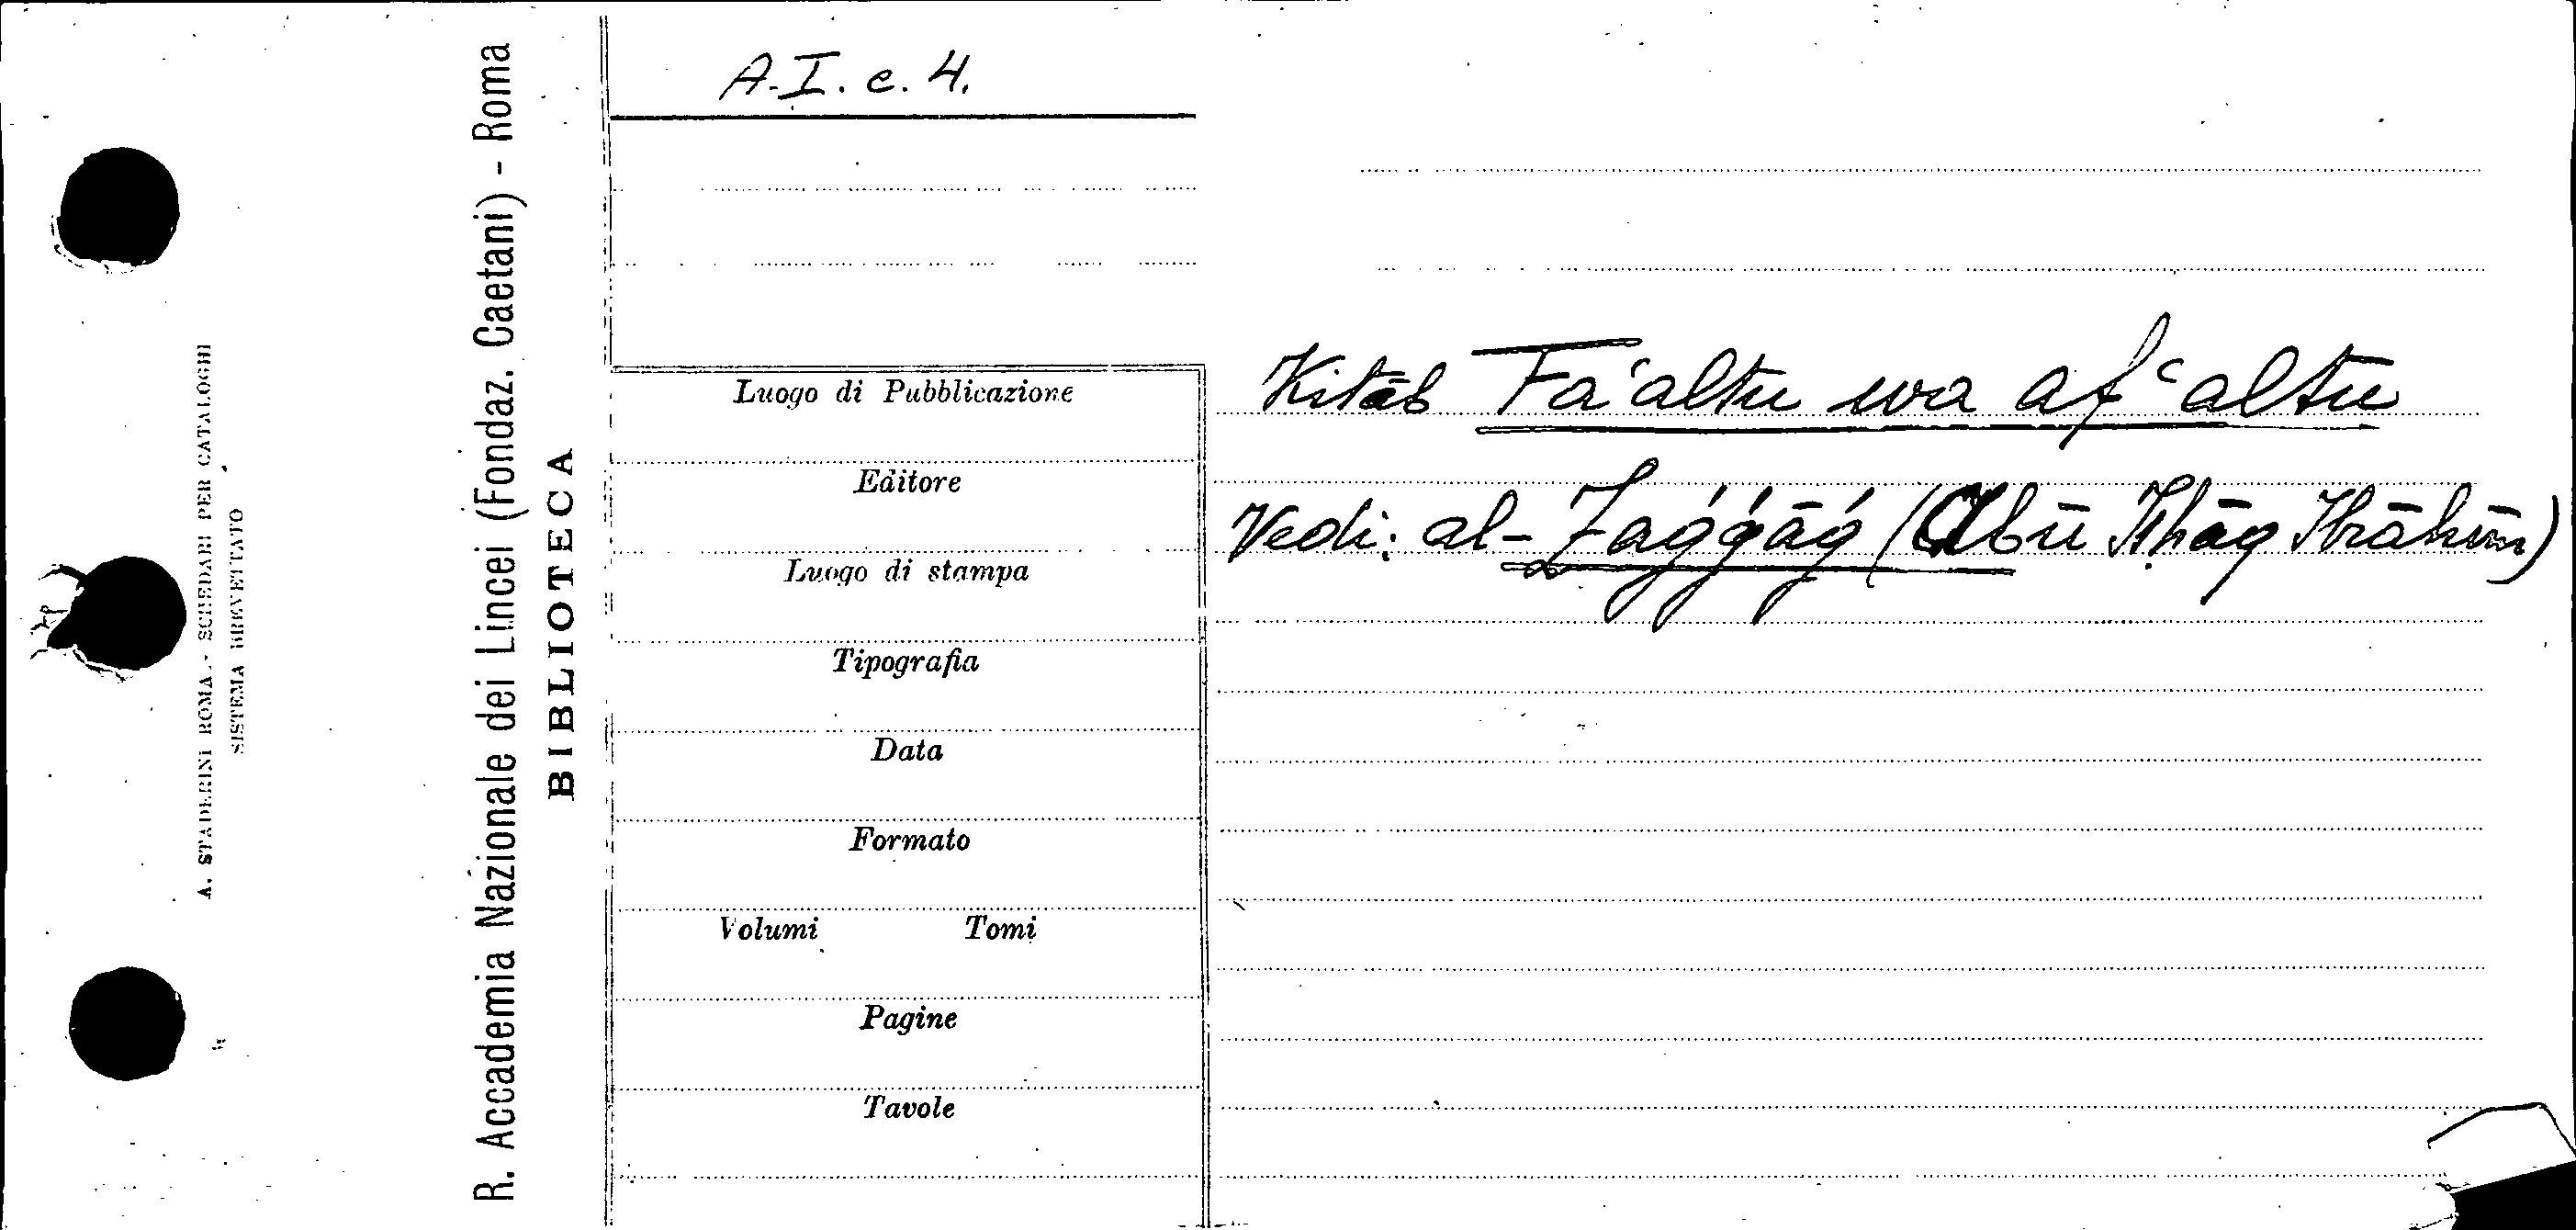 A. STADERINI ROMA - SCHEDARI PER CATALOGHI
SISTEMA BREVETTATO
R. Accademia Nazionale dei Lincei (Fondaz. Caetani) - Roma
BIBLIOTECA
A.I.c.4.
Luogo di Pubblicazione
Editore
Luogo di stampa
Tipografia
Data
Formato
Volumi Tomi
Pagine
Tavole
Kitāb Faʿaltu wa afʿaltu
Vedi: al-Zaǵǵāǵ (Abū Isḥāq Ibrāhīm)